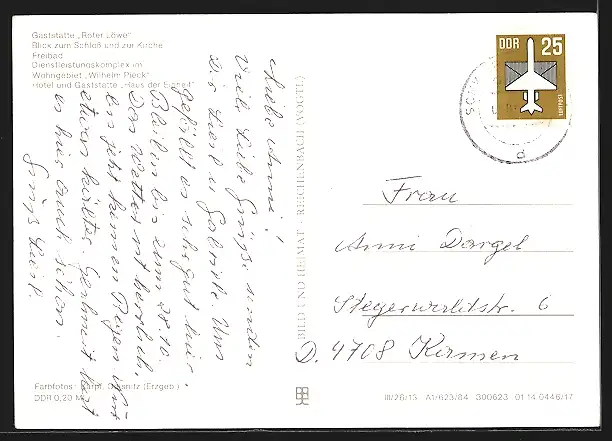 Gaststätte „Roter Löwe"
Blick zum Schloß und zur Kirche
Freibad
Dienstleistungskomplex im
Wohngebiet „Wilhelm Pieck"
Hotel und Gaststätte „Haus der Einheit"
Liebe Anni!
Viele Liebe Grüße senden
Dir Liesl u. Gabriele. Uns
gefällt es sehr gut hier.
Bleiben bis zum 28.10.
Das Wetter ist herrlich,
bis jetzt keinen Regen nur
etwas kälter. Gerhard lässt
es sich auch schön.
Gruß Liesl.
Farbfotos: (Erzgeb.)
DDR 0,20 M
BILD UND HEIMAT · REICHENBACH (VOGTL)
DDR 25
LUFTPOST
SCHW
d
Frau
Anni Dargel
Stegerwaldstr. 6
D. 4708 Kamen
III/26/13 A1/623/84 300623 01 14 0446/17